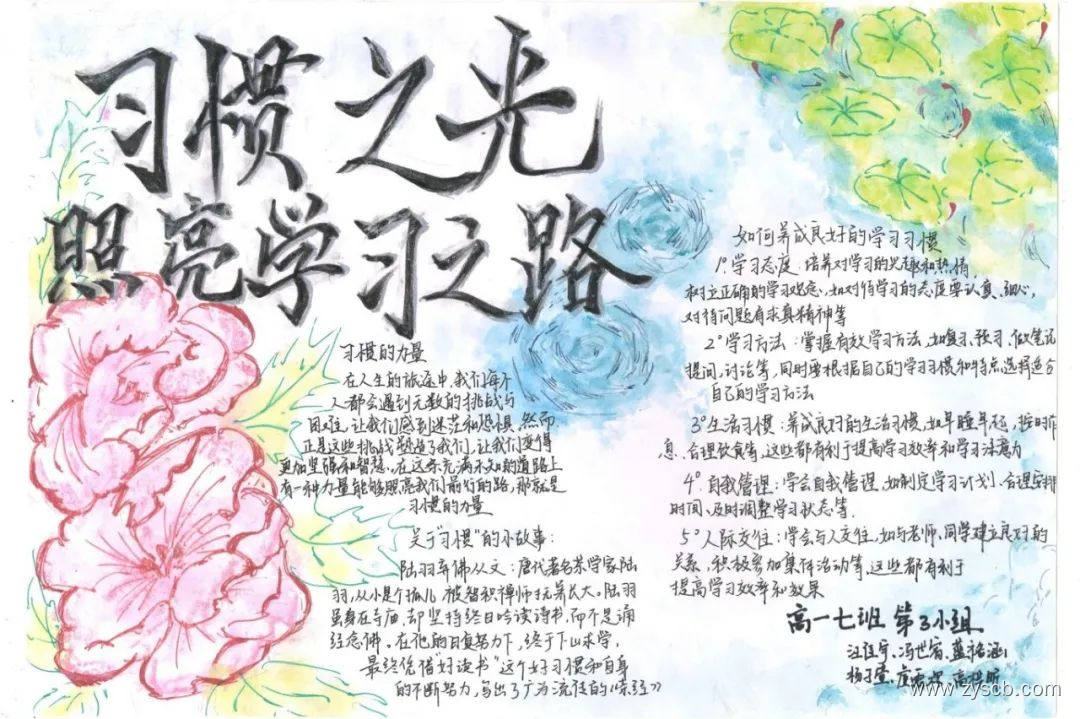 习惯之光
照亮学习之路
习惯的力量
在人生的旅途中，我们每个
人都会遇到无数的挑战与
困难，让我们感到迷茫和恐惧，然而
正是这些挑战塑造了我们，让我们变得
更加坚强和智慧。在这条充满未知的道路上
有一种力量能够照亮我们前行的路，那就是
习惯的力量
关于“习惯”的小故事：
陆羽弃佛从文：唐代著名茶学家陆
羽，从小是个孤儿，被智积禅师抚养长大。陆羽
虽身在寺庙，却坚持终日吟读诗书，而不是诵
经念佛。在他的日复努力下，终于下山求学，
最终凭借“好读书”这个好习惯和自身
的不断努力，写出了广为流传的《茶经》
如何养成良好的学习习惯
1°学习态度：培养对学习的兴趣和热情，
树立正确的学习观念，如对待学习的态度要认真、细心，
对待问题有求真精神等
2°学习方法：掌握有效学习方法，如复习、预习、做笔记
提问、讨论等，同时要根据自己的学习习惯和特点选择适合
自己的学习方法
3°生活习惯：养成良好的生活习惯，如早睡早起，按时作
息、合理饮食等，这些都有利于提高学习效率和学习注意力
4°自我管理：学会自我管理，如制定学习计划、合理安排
时间、及时调整学习状态等.
5°人际交往：学会与人交往，如与老师、同学建立良好的
关系，积极参加集体活动等，这些都有利于
提高学习效率和效果
高一七班 第3小组
www.zyscb.com